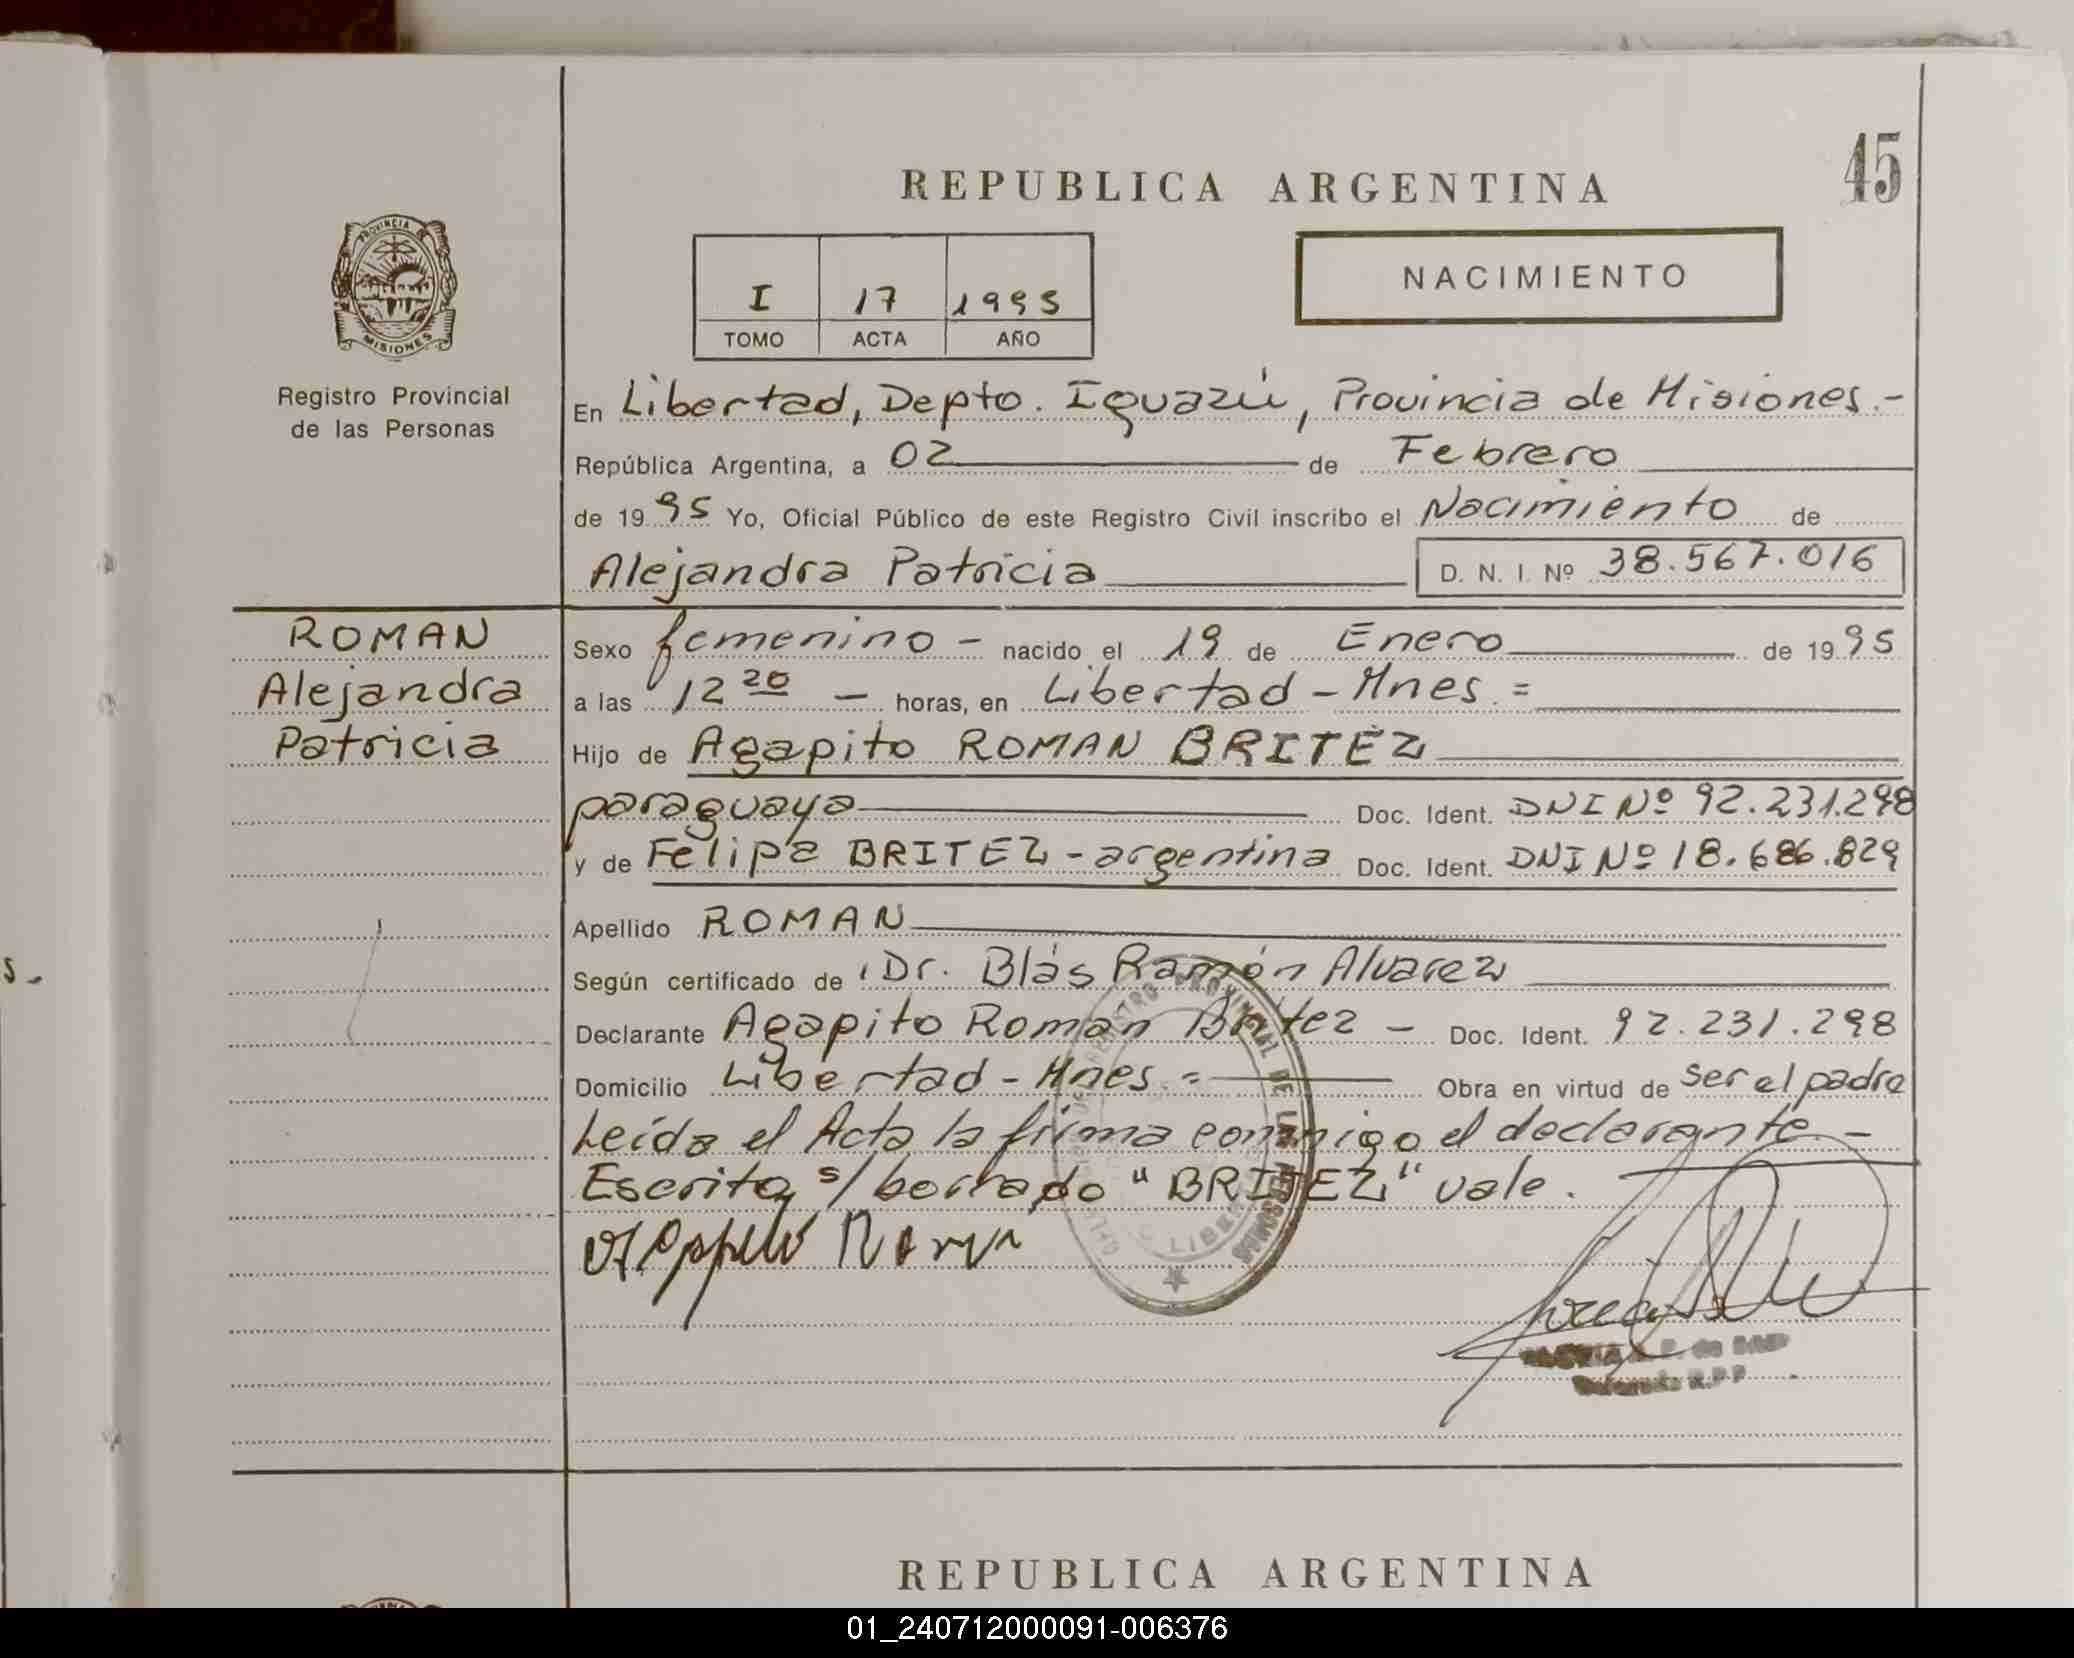 45
REPUBLICA ARGENTINA
PROVINCIA DE
MISIONES
I 17 1995
TOMO ACTA AÑO
NACIMIENTO
Registro Provincial
de las Personas
En Libertad, Depto. Iguazú, Provincia de Misiones.-
República Argentina, a 02 de Febrero
de 1995 Yo, Oficial Público de este Registro Civil inscribo el Nacimiento de
Alejandra Patricia D. N. I. Nº 38.567.016
ROMAN
Alejandra
Patricia
Sexo femenino - nacido el 19 de Enero de 1995
a las 12 20 - horas, en Libertad - Mnes. =
Hijo de Agapito ROMAN BRITEZ
paraguaya Doc. Ident. DNI Nº 92.231.298
y de Felipa BRITEZ - argentina Doc. Ident. DNI Nº 18.686.829
Apellido ROMAN
s.-
Según certificado de Dr. Blás Ramón Alvarez
Declarante Agapito Roman Britez - Doc. Ident. 92.231.298
Domicilio Libertad - Mnes. = Obra en virtud de ser el padre
Leída el Acta la firma conmigo el declarante. -
Escrito s/ borrado "BRITEZ" vale.
REGISTRO PROVINCIAL DE LAS PERSONAS
REPUBLICA ARGENTINA
01_240712000091-006376